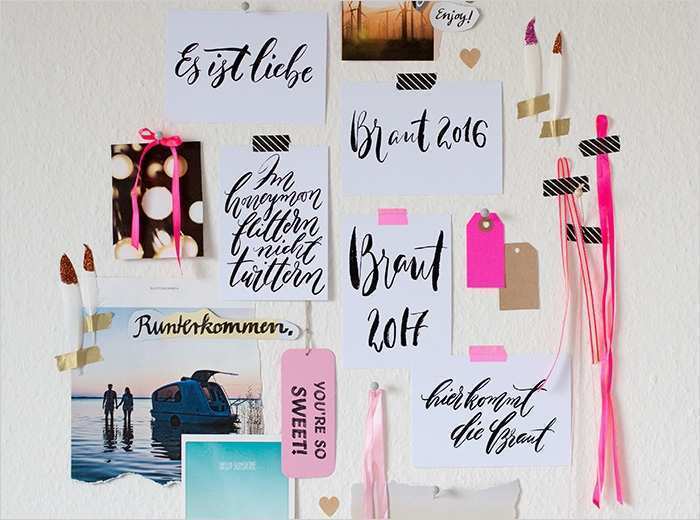 Es ist liebe
Enjoy!
Braut 2016
Im
honeymoon
flittern
nicht
twittern
Braut
2017
Runterkommen.
YOU'RE SO
SWEET!
hier kommt
die Braut